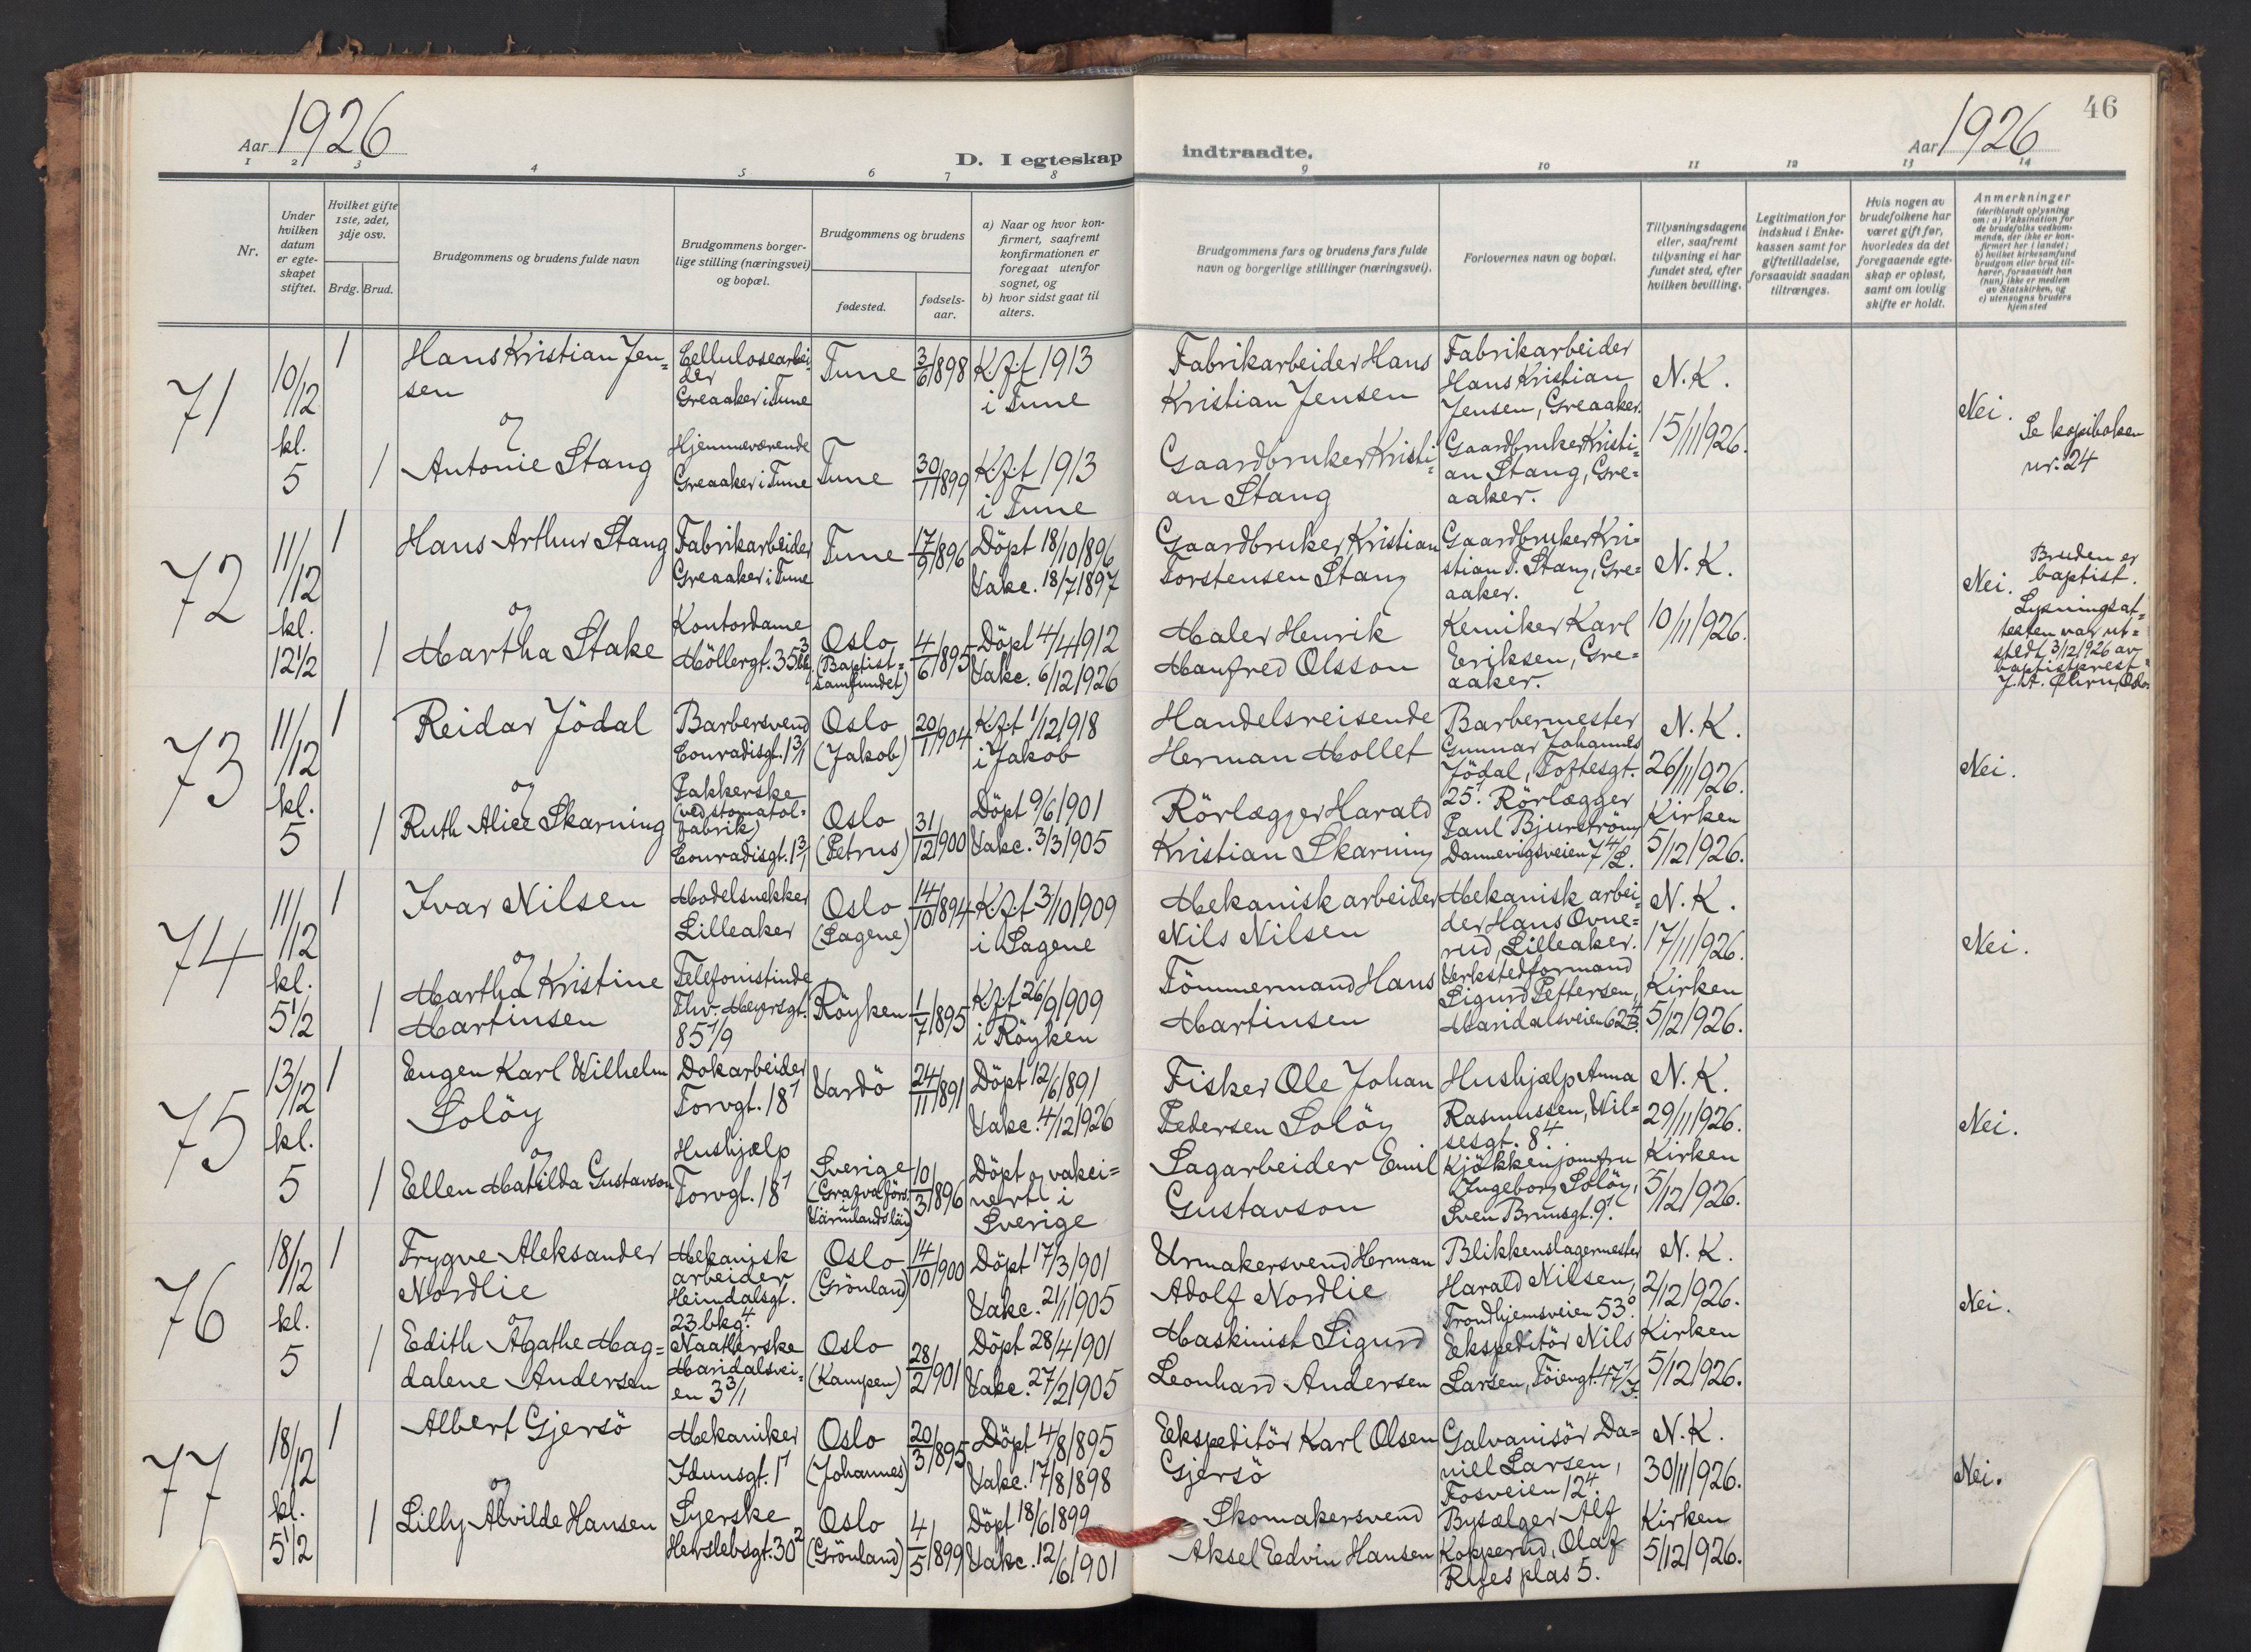 46
Aar 1926
Aar 1926
D. I egteskap indtraadte.
1 2 3 4 5 6 7 8 9 10 11 12 13 14
Nr.
Under
hvilken
datum
er egte-
skapet
stiftet.
Hvilket gifte
1ste, 2det,
3dje osv.
Brdg. Brud.
Brudgommens og brudens fulde navn
Brudgommens borger-
lige stilling (næringsvei)
og bopæl.
Brudgommens og brudens
fødested.
fødsels-
aar.
a) Naar og hvor kon-
firmert, saafremt
konfirmationen er
foregaat utenfor
sognet, og
b) hvor sidst gaat til
alters.
Brudgommens fars og brudens fars fulde
navn og borgerlige stillinger (næringsvei).
Forlovernes navn og bopæl.
Tillysningsdagene
eller, saafremt
tillysning ei har
fundet sted, efter
hvilken bevilling.
Legitimation for
indskud i Enke-
kassen samt for
giftetilladelse,
forsaavidt saadan
tiltrænges.
Hvis nogen av
brudefolkene har
været gift før,
hvorledes da det
foregaaende egte-
skap er opløst,
samt om lovlig
skifte er holdt.
Anmerkninger
(deriblandt oplysning
om: a) Vaksination for
de brudefolks vedkom-
mende, der ikke er kon-
firmert her i landet;
b) hvilket kirkesamfund
brudgom eller brud til-
hører, forsaavidt han
(hun) ikke er medlem
av Statskirken, og
c) utensogns bruders
hjemsted
71
10/12
kl.
5
1
Hans Kristian Jen=
sen
og
1
Antonie Stang
Cellulosearbei=
der
Greaaker i Tune
Hjemmeværende
Greaaker i Tune
Tune
Tune
3/6 1898
30/11 1899
K.f.t 1913
i Tune
K.f.t 1913
i Tune
Fabrikarbeider Hans
Kristian Jensen
Gaardbruker Kristi=
an Stang
Fabrikarbeider
Hans Kristian
Jensen, Greaaker.
Gaardbruker Kristi=
an Stang, Gre=
aaker.
N.K.
15/11 1926.
Nei.
Se kopiboken
nr. 24
72
11/12
kl.
12 1/2
1
Hans Arthur Stang
og
1
Martha Stake
Fabrikarbeider
Greaaker i Tune
Kontordame
Möllergt. 35
Tune
Oslo
(Baptist=
samfundet)
17/9 1896
4/6 1895
Döpt 18/10 1896
Vakc. 18/7 1897
Döpt 4/4 1912
Vakc. 6/12 1926
Gaardbruker Kristian
Torstensen Stang
Maler Henrik
Manfred Olsson
Gaardbruker Kri=
stian T. Stang, Gre=
aaker.
Kemiker Karl
Eriksen, Gre=
aaker.
N.K.
10/11 1926.
Nei.
Bruden er
baptist.
Lysningsat=
testen var ut=
stedt 3/12 1926 av
baptistprest
J. A. Öhrn, Oslo.
73
11/12
kl.
5
1
Reidar Jödal
og
1
Ruth Alice Skarning
Barbersvend
Conradisgt. 1 3/1
Pakkerske
(ved stomatol=
fabrik)
Conradisgt. 1 3/1
Oslo
(Jakob)
Oslo
(Petrus)
20/1 1904
31/12 1900
K.f.t 1/12 1918
i Jakob
Döpt 9/6 1901
Vakc. 3/3 1905
Handelsreisende
Herman Mollet
Rörlægger Harald
Kristian Skarning
Barbermester
Gunnar Johannes
Jödal, Toftesgt.
25 1. Rörlægger
Paul Bjurström
Dannevigsveien 7 4/L.
N.K.
26/11 1926.
Kirken
5/12 1926.
Nei.
74
11/12
kl.
5 1/2
1
Ivar Nilsen
og
1
Martha Kristine
Martinsen
Modelsnekker
Lilleaker
Telefonistinde
Thv. Meyersgt.
85 1/9
Oslo
(Sagene)
Röyken
14/10 1894
1/7 1895
K.f.t 3/10 1909
i Sagene
K.f.t 26/9 1909
i Röyken
Mekanisk arbeider
Nils Nilsen
Tömmermand Hans
Martinsen
Mekanisk arbei=
der Hans Ovne=
rud, Lilleaker.
Verkstedformand
Sigurd Pettersen,
Maridalsveien 62
N.K.
17/11 1926.
Kirken
5/12 1926.
Nei.
75
13/12
kl.
5
1
Eugen Karl Wilhelm
Solöy
og
1
Ellen Matilda Gustavson
Dokarbeider
Torvgt. 18 1
Hushjælp
Torvgt. 18 1
Vardö
Sverige
i
Värmlandslän)
24/11 1891
10/3 1896
Döpt 12/6 1891
Vakc. 4/12 1926
Döpt og vakci=
nert i
Sverige
Fisker Ole Johan
Pedersen Solöy
Sagarbeider Emil
Gustavson
Hushjælp Anna
Rasmussen, Wil=
sesgt. 8 4.
Kjökkenjomfru
Ingeborg Solöy,
Sven Brunsgt. 9 1.
N.K.
29/11 1926.
Kirken
5/12 1926.
Nei.
76
18/12
kl.
5
1
Trygve Aleksander
Nordlie
og
1
Edith Agathe Mag=
dalene Andersen
Mekanisk
arbeider
Heimdalsgt.
23 bkg. 4
Naatlerske
Maridalsvei=
en 3 3/1
Oslo
(Grönland)
Oslo
(Kampen)
14/10 1900
28/2 1901
Döpt 17/3 1901
Vakc. 21/1 1905
Döpt 28/4 1901
Vakc. 27/2 1905
Urmakersvend Herman
Adolf Nordlie
Maskinist Sigurd
Leonhard Andersen
Blikkenslagermester
Harald Nilsen,
Trondhjemsveien 53 0.
Ekspeditör Nils
Larsen, Töiengt. 47
N.K.
2/12 1926.
Kirken
5/12 1926.
Nei.
77
18/12
kl.
5 1/2
1
Albert Gjersö
og
1
Lilly Alvilde Hansen
Mekaniker
Idunsgt. 1 1
Syerske
Herslebsgt. 30 2
Oslo
(Johannes)
Oslo
(Grönland)
20/3 1895
4/5 1899
Döpt 4/8 1895
Vakc. 17/8 1898
Döpt 18/6 1899
Vakc. 12/6 1901
Ekspeditör Karl Olsen
Gjersö
Skomakersvend
Aksel Edvin Hansen
Galvanisör Da=
niel Larsen,
Fosveien 12 4.
Bysælger Alf
Kopperud, Olaf
Ryes plas 5.
N.K.
30/11 1926.
Kirken
5/12 1926.
Nei.